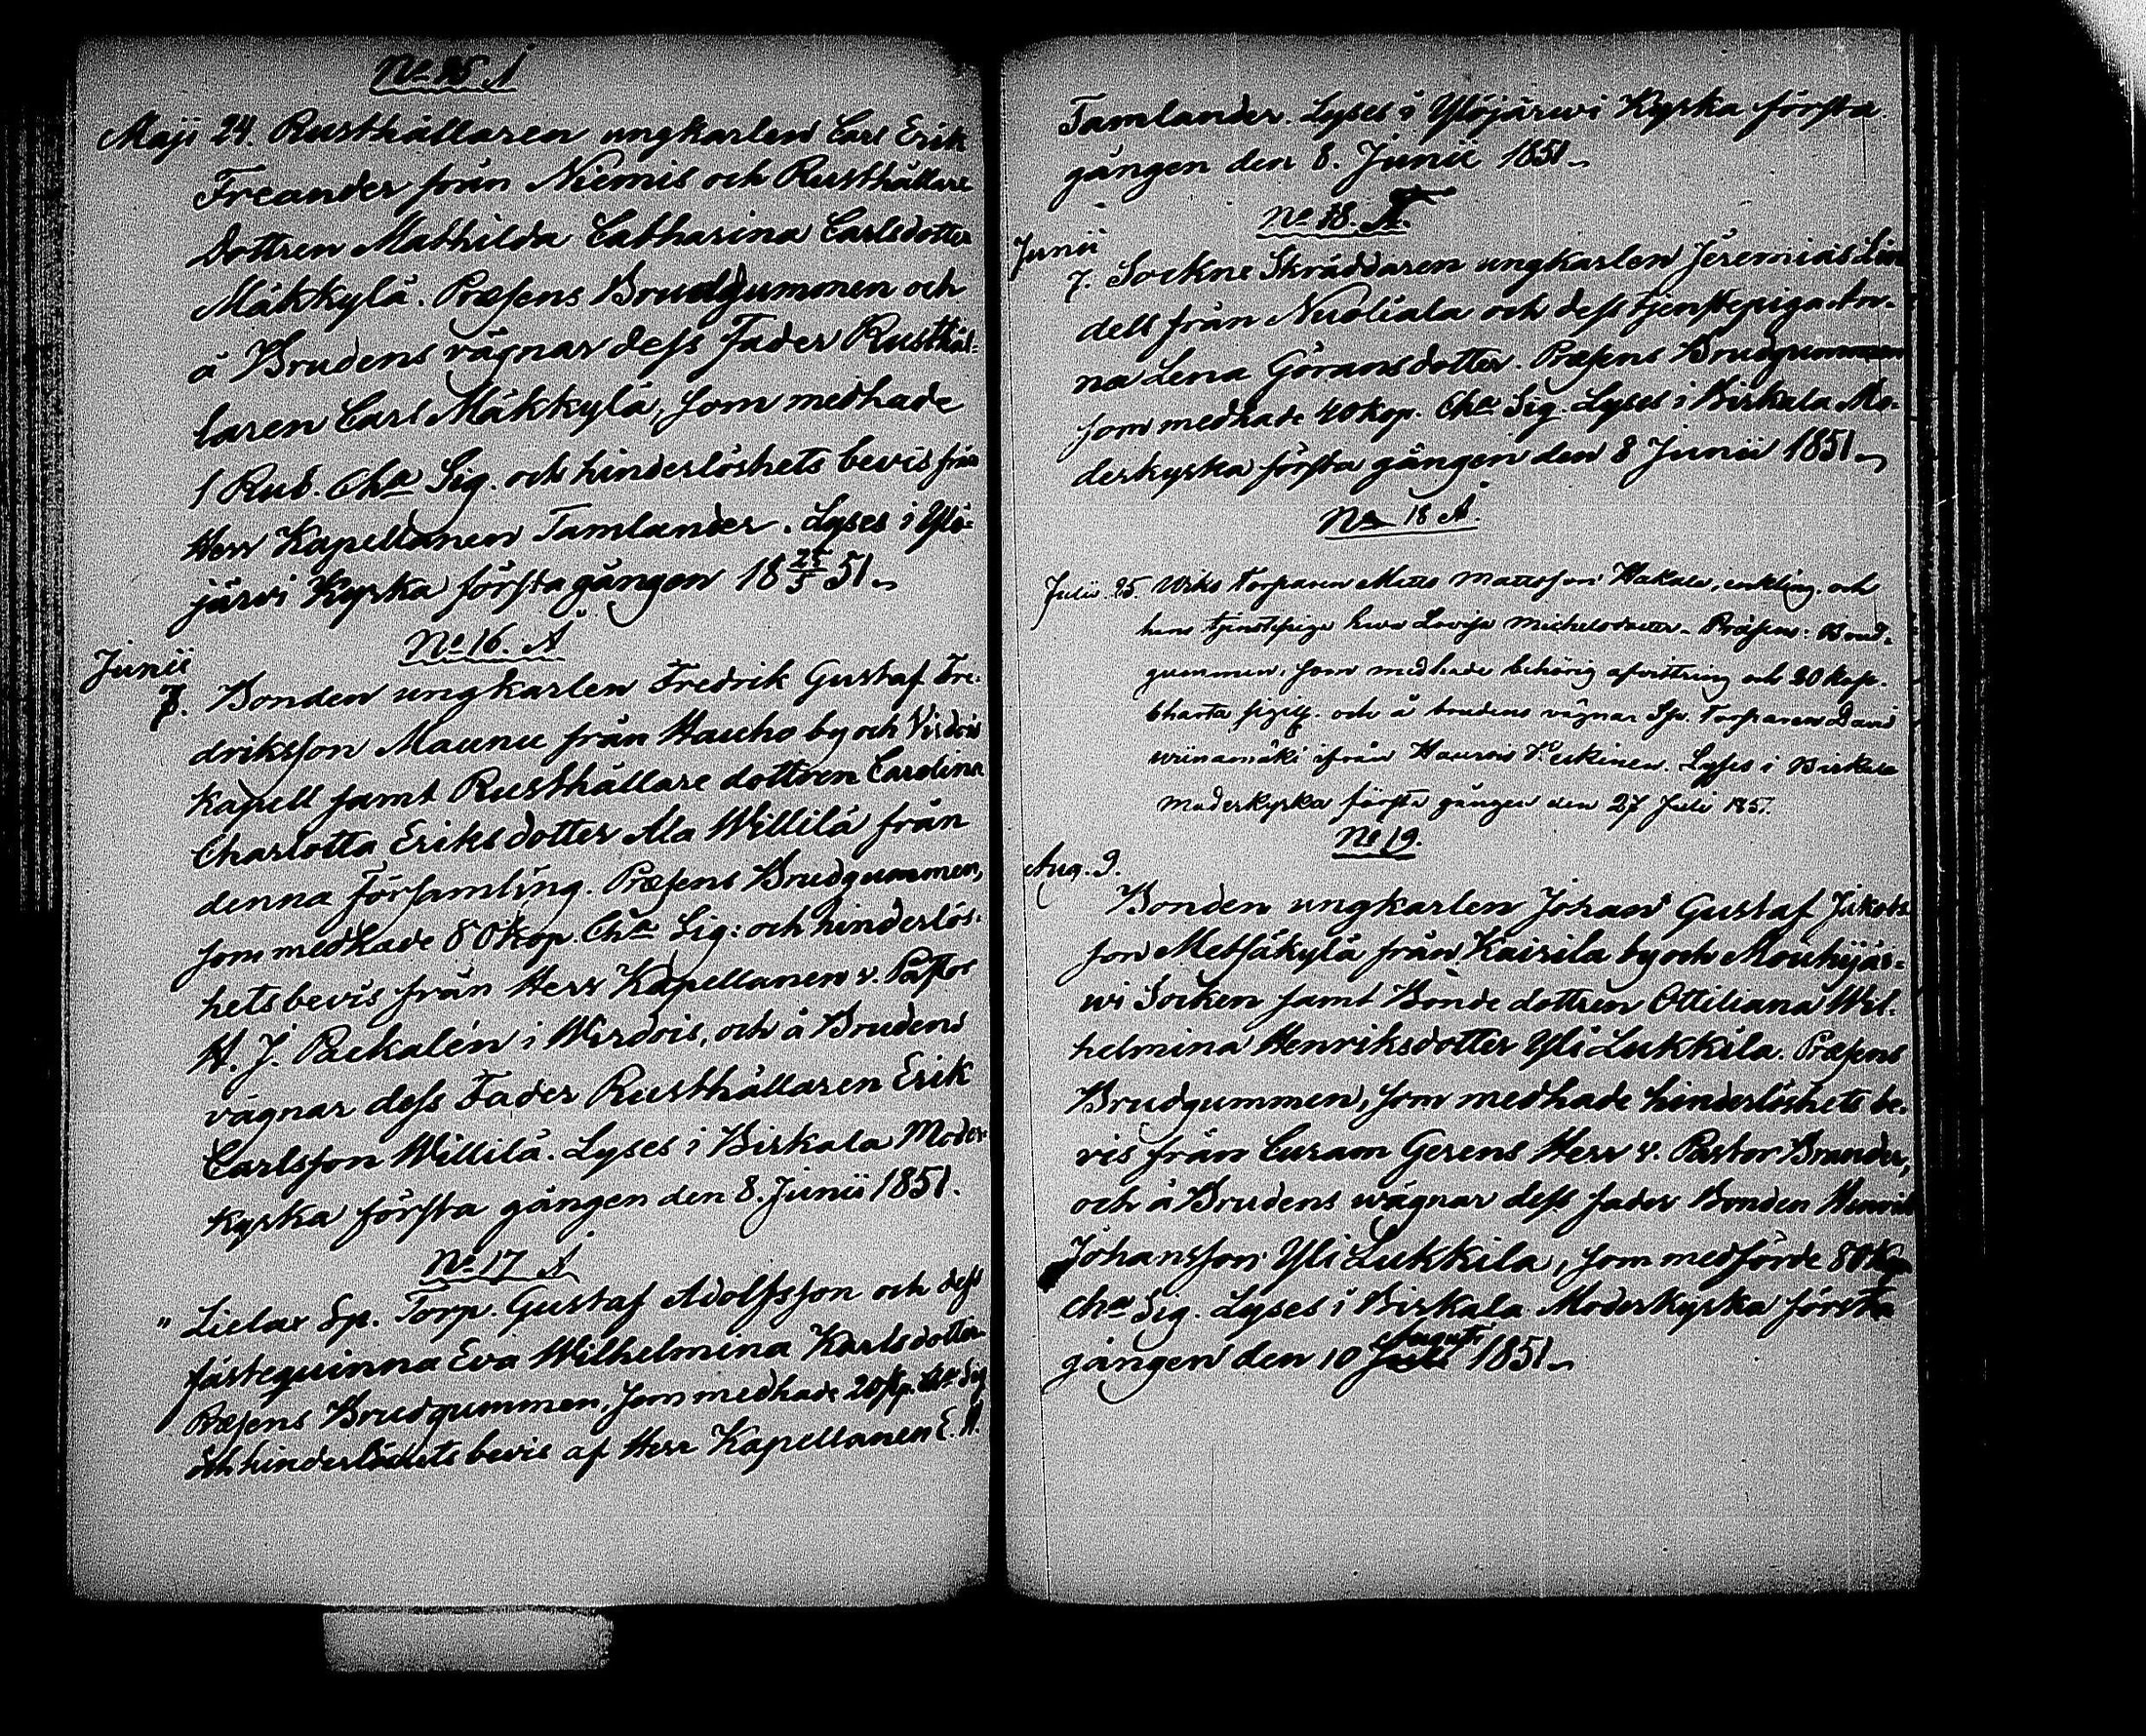 No 15 A
Maji 24. Rusthållaren ungkarlen Carl Erik
Freander från Niemis och Rusthållare
dottren Mathilda Catharina Carlsdotter
Mäkkylä. Præsens Brudgummen och
å Brudens vägnar dess Fader Rusthål-
laren Carl Mäkkylä, som medhade
1 Rub. Cha Sig. och hinderlöshets bevis från
Herr Kapellanen Tamlander. Lyses i Ylö-
järvi Kyrka första gången 18 25/5 51.
No 16. A
Junii
7. Bonden ungkarlen Fredrik Gustaf Fre-
driksson Maunu från Hauho by och Virdois
Kapell samt Rusthållare dottren Carolina
Charlotta Eriksdotter Ala Willilä från
denna Församling. Præsens Brudgummen,
som medhade 80 kop. Cha Sig: och hinderlös-
hetsbevis från Herr Kapellanen v. Pastor
H. J. Backalén i Wirdois, och å Brudens
vägnar dess Fader Rusthållaren Erik
Carlsson Willilä. Lyses i Birkala Moder
Kyrka första gången den 8. Junii 1851.
No 17 A
" Lielax Sp. Torp. Gustaf Adolfsson och dess
fästeqvinna Eva Wilhelmina Karlsdotter
Præsens Brudgummen, som medhade 20 Kp. Cha Sig
och hinderlöshets bevis af Herr Kapellanen E. H.
Tamlander. Lyses i Ylöjärwi Kyrka första
gången den 8. Junii 1851.
No 18. A.
Junii
7. Sockne Skräddaren ungkarlen Jeremias Lin
dell från Nuoliala och dess tjenstepiga An-
na Lena Göransdotter. Præsens Brudgummen
som medhade 40 kop. Cha Sig. Lyses i Birkala Mo-
derkyrka första gången den 8 Junii 1851.
No 18 A.
Julii 25. Torparen Matts Mattsson Hakala, enkling, och
hans tjenstepiga Eva Lovisa Michelsdotter. Præsens: Brud-
gummen, som medhade behörig afvittring och 20 kop.
Charta sigill. och å brudens vägnar Sp. Torparen
ifrån Keskinen. Lyses i Birkala
moderkyrka första gången den 27 Juli 1851.
No 19.
Aug. 9.
Bonden ungkarlen Johan Gustaf Jakobs
son Metsäkylä från Kairila by och Mouhijär-
wi Socken samt Bonde dottren Ottiliana Wil-
helmina Henriksdotter Yli Lukkila. Præsens
Brudgummen, som medhade hinderlöshets be-
vis från Curam Gerens Herr v. Pastor Brander,
och å Brudens wägnar dess fader Bonden Henrik
Johansson Yli Lukkila, som medförde 80 Kp
cha Sig. Lyses i Birkala Moderkyrka första
gången den 10 Augusti 1851.